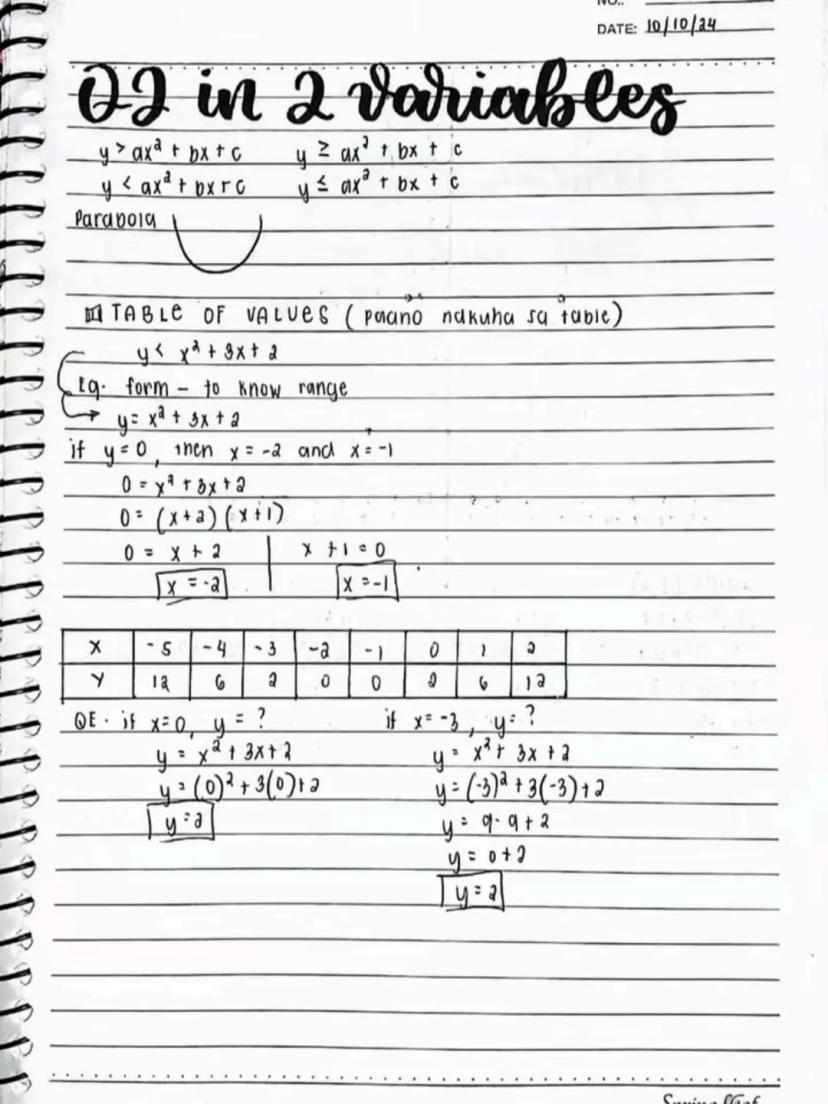 NO.:
DATE: 10/10/24
QI in 2 variables
y > ax² + bx + c y ≥ ax² + bx + c
y < ax² + bx + c y ≤ ax² + bx + c
Parabola
TABLE OF VALUES (paano nakuha sa table)
y < x² + 3x + 2
Eq. form - to know range
y = x² + 3x + 2
if y = 0, then x = -2 and x = -1
0 = x² + 3x + 2
0 = (x+2) (x+1)
0 = x + 2 | x + 1 = 0
x = -2 x = -1
X -5 -4 -3 -2 -1 0 1 2
Y 12 6 2 0 0 2 6 12
QE. if x=0, y = ? if x = -3, y = ?
y = x² + 3x + 2 y = x² + 3x + 2
y = (0)² + 3(0) + 2 y = (-3)² + 3(-3) + 2
y = 2 y = 9 - 9 + 2
y = 0 + 2
y = 2